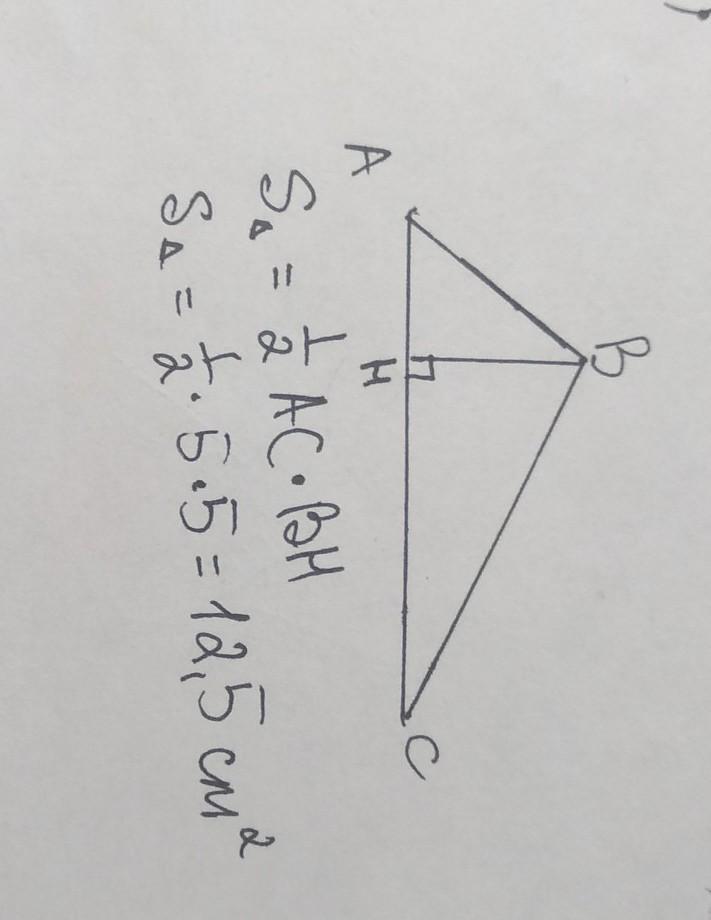 B
A
H
C
S△ = 1/2 AC · BH
S△ = 1/2 · 5 · 5 = 12,5 см²